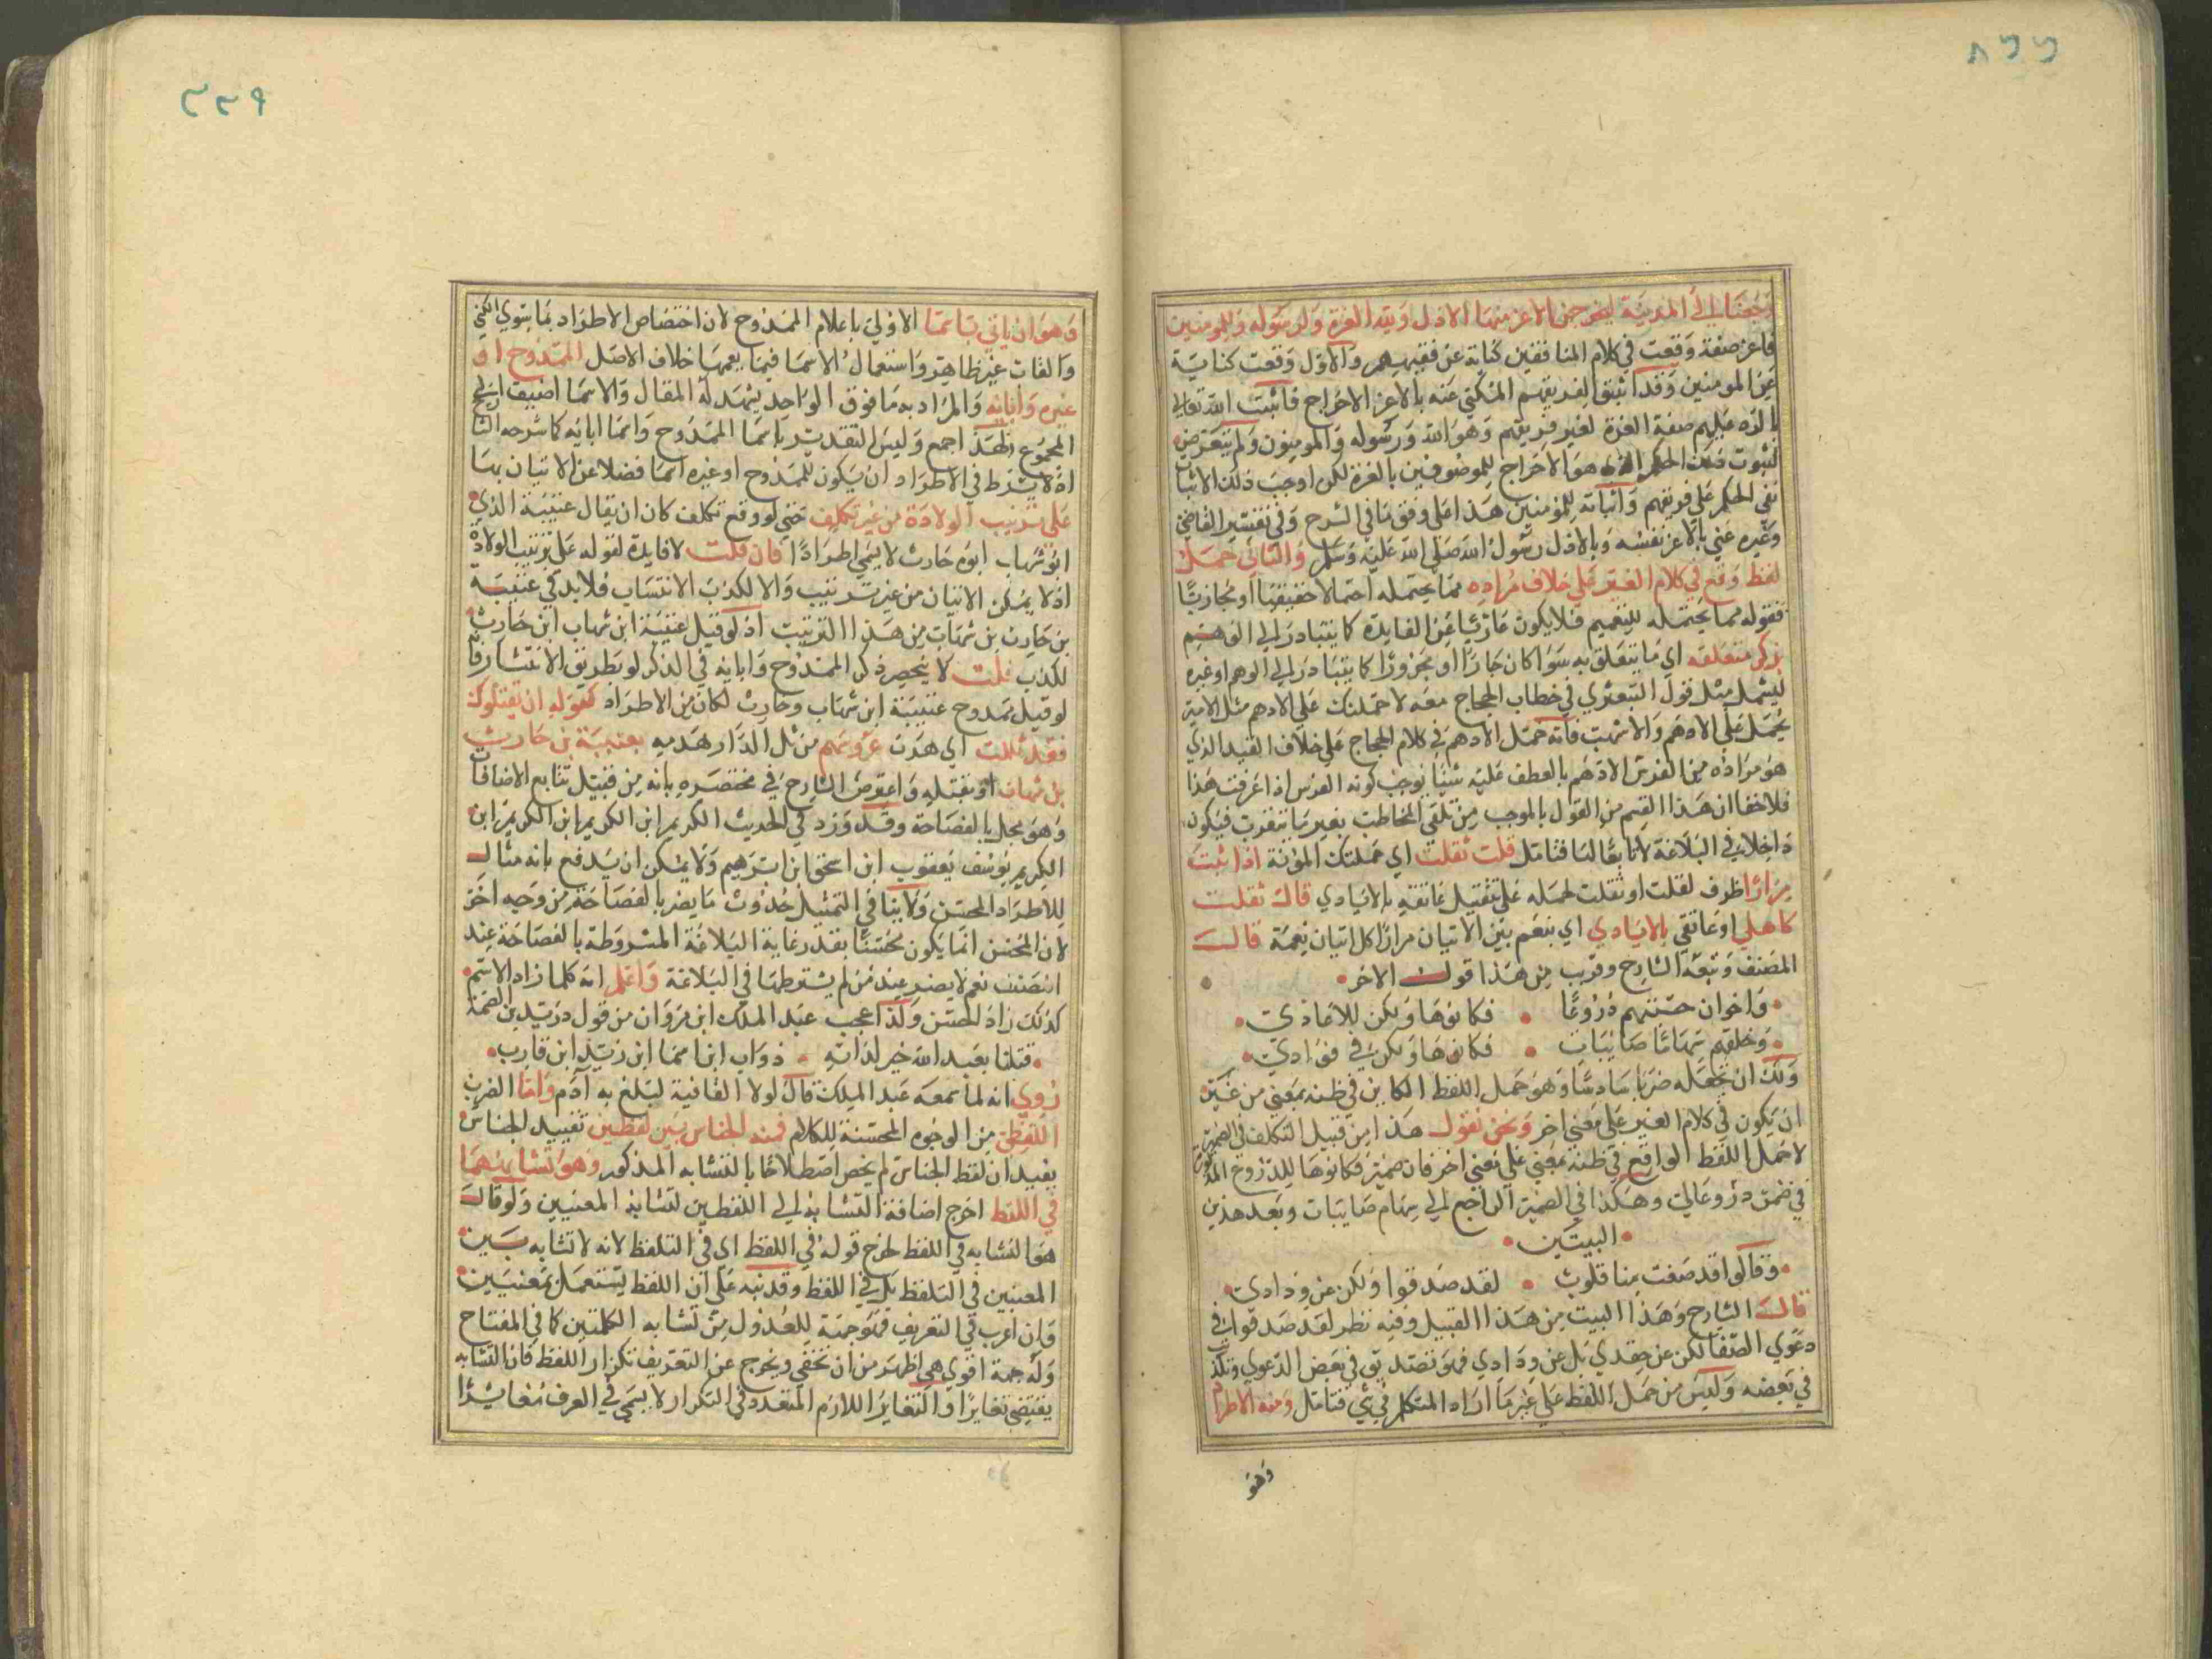 ٢٢٨
رجعنا الى المدينة ليخرجن الاعز منها الاذل ولله العزة ولرسوله وللمومنين
فاعز صفة وقعت في كلام المنافقين كناية عن فقيههم والاول وقعت كناية
عن المومنين وقد اثبتوا لفريقهم المكني عنه بالاعز الاخراج فاثبت الله تعالى
بالرد عليهم صفة العزة لغير فريقهم وهو الله ورسوله والمومنون ولم يتعرض
لثبوت ذلك الحكم الذي هو الاخراج للموصوفين بالعزة لكن اوجب ذلك الاثبات
نفي الحكم على فريقهم واثباته للمومنين هذا على وفق ما في الشرح وفي تفسير القاضي
وغيره عني بالاعز نفسه وبالاذل رسول الله صلى الله عليه وسلم والثاني حمل
لفظ وقع في كلام الغير على خلاف مراده مما يحتمله احتمالا حقيقيا او مجازيا
فقوله مما يحتمله للتعميم فلا يكون عاريا عن الفايدة كما يتبادر الى الوهم
بذكر متعلقه اي ما يتعلق به سوا كان جارا او مجرورا كما يتبادر الى الوهم او غيره
ليشمل مثل قول القبعثري في خطاب الحجاج معه لاحملنك على الادهم مثل الامير
يحمل على الادهم والاشهب فانه حمل الادهم في كلام الحجاج على خلاف القيد الذي
هو مراده من الفرس الادهم بالعطف عليه شيئا يوجب كونه الفرس اذا عرفت هذا
فلا خفا ان هذا القسم من القول بالموجب من تلقي المخاطب بغير ما يترقب فيكون
داخلا في البلاغة لا تابعا لها فتامل قلت ثقلت اي حملتك المؤنة اذا اتيت
مرارا ظرف لقلت او ثقلت لحمله على تثقيل عاتقه بالايادي قال ثقلت
كاهلي او عاتقي بالايادي اي بنعم بين الاتيان مرارا كل اتيان نعمة قال
المصنف وتبعه الشارح وقريب من هذا قول الاخر
واخوان حسبتهم دروعا فكانوها ولكن للاعادي
وخلتهم سهاما صايبات فكانوها ولكن في فؤادي
ولك ان تجعله ضربا سادسا وهو حمل اللفظ الكاين في ظنه بمعنى من غير
ان يكون في كلام الغير على معنى اخر ونحن نقول هذا من قبيل التكلف في الضمير
لا حمل اللفظ الواقع في ظنه بمعنى على معنى اخر فان ضمير فكانوها للدروع
في ضمن دروعا لي وهكذا في الضمير الراجع الى سهام صايبات وبعد هذين
البيتين
وقالوا قد صفت منا قلوب لقد صدقوا ولكن عن ودادي
قال الشارح وهذا البيت من هذا القبيل وفيه نظر لقد صدقوا في
دعوي الصفا لكن عن حقدي بل عن ودادي فهو تصديق في بعض الدعوي وتكذيب
في بعضه وليس من حمل اللفظ على غير ما اراد المتكلم في شي فتامل ومنه الاطراد
وهو
٢٢٩
وهو ان ياتي باسما الاولى باعلام الممدوح لان اختصاص الاطراد بما سوى الكنى
والقاب غير ظاهر واستعمال الاسما فيما يعمها خلاف الاصل الممدوح او
غيره وابائه والمراد به ما فوق الواحد يشهد له المقال والاسما اضيف الى
المجموع فلهذا جمع وليس التقدير باسما الممدوح واسما ابائه كما شرحه الشارح
اذ لا يشترط في الاطراد ان يكون للممدوح او غيره اسما فضلا عن الاتيان بها
على ترتيب الولادة من غير تكلف حتى لو وقع تكلف كان ان يقال عتيبة الذي
ابو شهاب ابوه حارث لا يسمى اطرادا فان قلت لا فايدة لقوله على ترتيب الولادة
اذ لا يمكن الاتيان من غير ترتيب والا لكذب الانتساب فلا بد في عتيبة
بن حارث بن شهاب من هذا الترتيب اذ لو قيل عتيبة ابن شهاب ابن حارث
لكذب قلت لا ينحصر ذكر الممدوح وابائه في الذكر لو بطريق الانتساب
لو قيل ممدوح عتيبة ابن شهاب وحارث لكان من الاطراد كقوله ان يقتلوك
فقد ثللت اي هدت عروشهم من ثل الدار هدمه بعتيبة بن حارث
بن شهاب او بقتله واعترض الشارح في مختصره بانه من قبيل تتابع الاضافات
وهو مخل بالفصاحة وقد ورد في الحديث الكريم ابن الكريم ابن الكريم ابن
الكريم يوسف يعقوب ابن اسحق ابن ابرهيم ولا يمكن ان يدفع بانه مثال
للاطراد المحسن ولا ينافي التمثيل حدوث ما يضر بالفصاحة من وجه اخر
لان المحسن انما يكون محسنا بعد رعاية البلاغة المشروطة بالفصاحة عند
المصنف نعم لا يضر عند من لم يشترطها في البلاغة واعلم انه كلما زاد الاسم
كذلك زاد الحسن ولذا عجب عبد الملك ابن مروان من قول دريد بن الصمة
قتلنا بعبد الله خير لداته ذواب ابن اسما ابن زيد ابن قارب
روي انه لما سمعه عبد الملك قال لولا القافية لبلغ به آدم واما الضرب
اللفظي من الوجوه المحسنة للكلام فمنه الجناس بين لفظين تقييد الجناس
يفيد ان لفظ الجناس لم يخص اصطلاحا بالتشابه المذكور وهو تشابههما
في اللفظ اخرج اضافة التشابه الى اللفظين لتشابه المعنيين ولو قال
هو التشابه في اللفظ لخرج قوله في اللفظ اي في التلفظ لانه لا تشابه بين
المعنيين في التلفظ بل في اللفظ وقد نبه على ان اللفظ يستعمل بمعنيين
وان اغرب في التعريف فتوجيه للعدول من تشابه الكلمتين كما في المفتاح
وله جهة اقوي هي اظهر من ان تخفى ويخرج عن التعريف تكرار اللفظ فان التشابه
يقتضي تغايرا والتغاير اللازم المتعدد في التكرار لا يسمى في العرف مغايرا